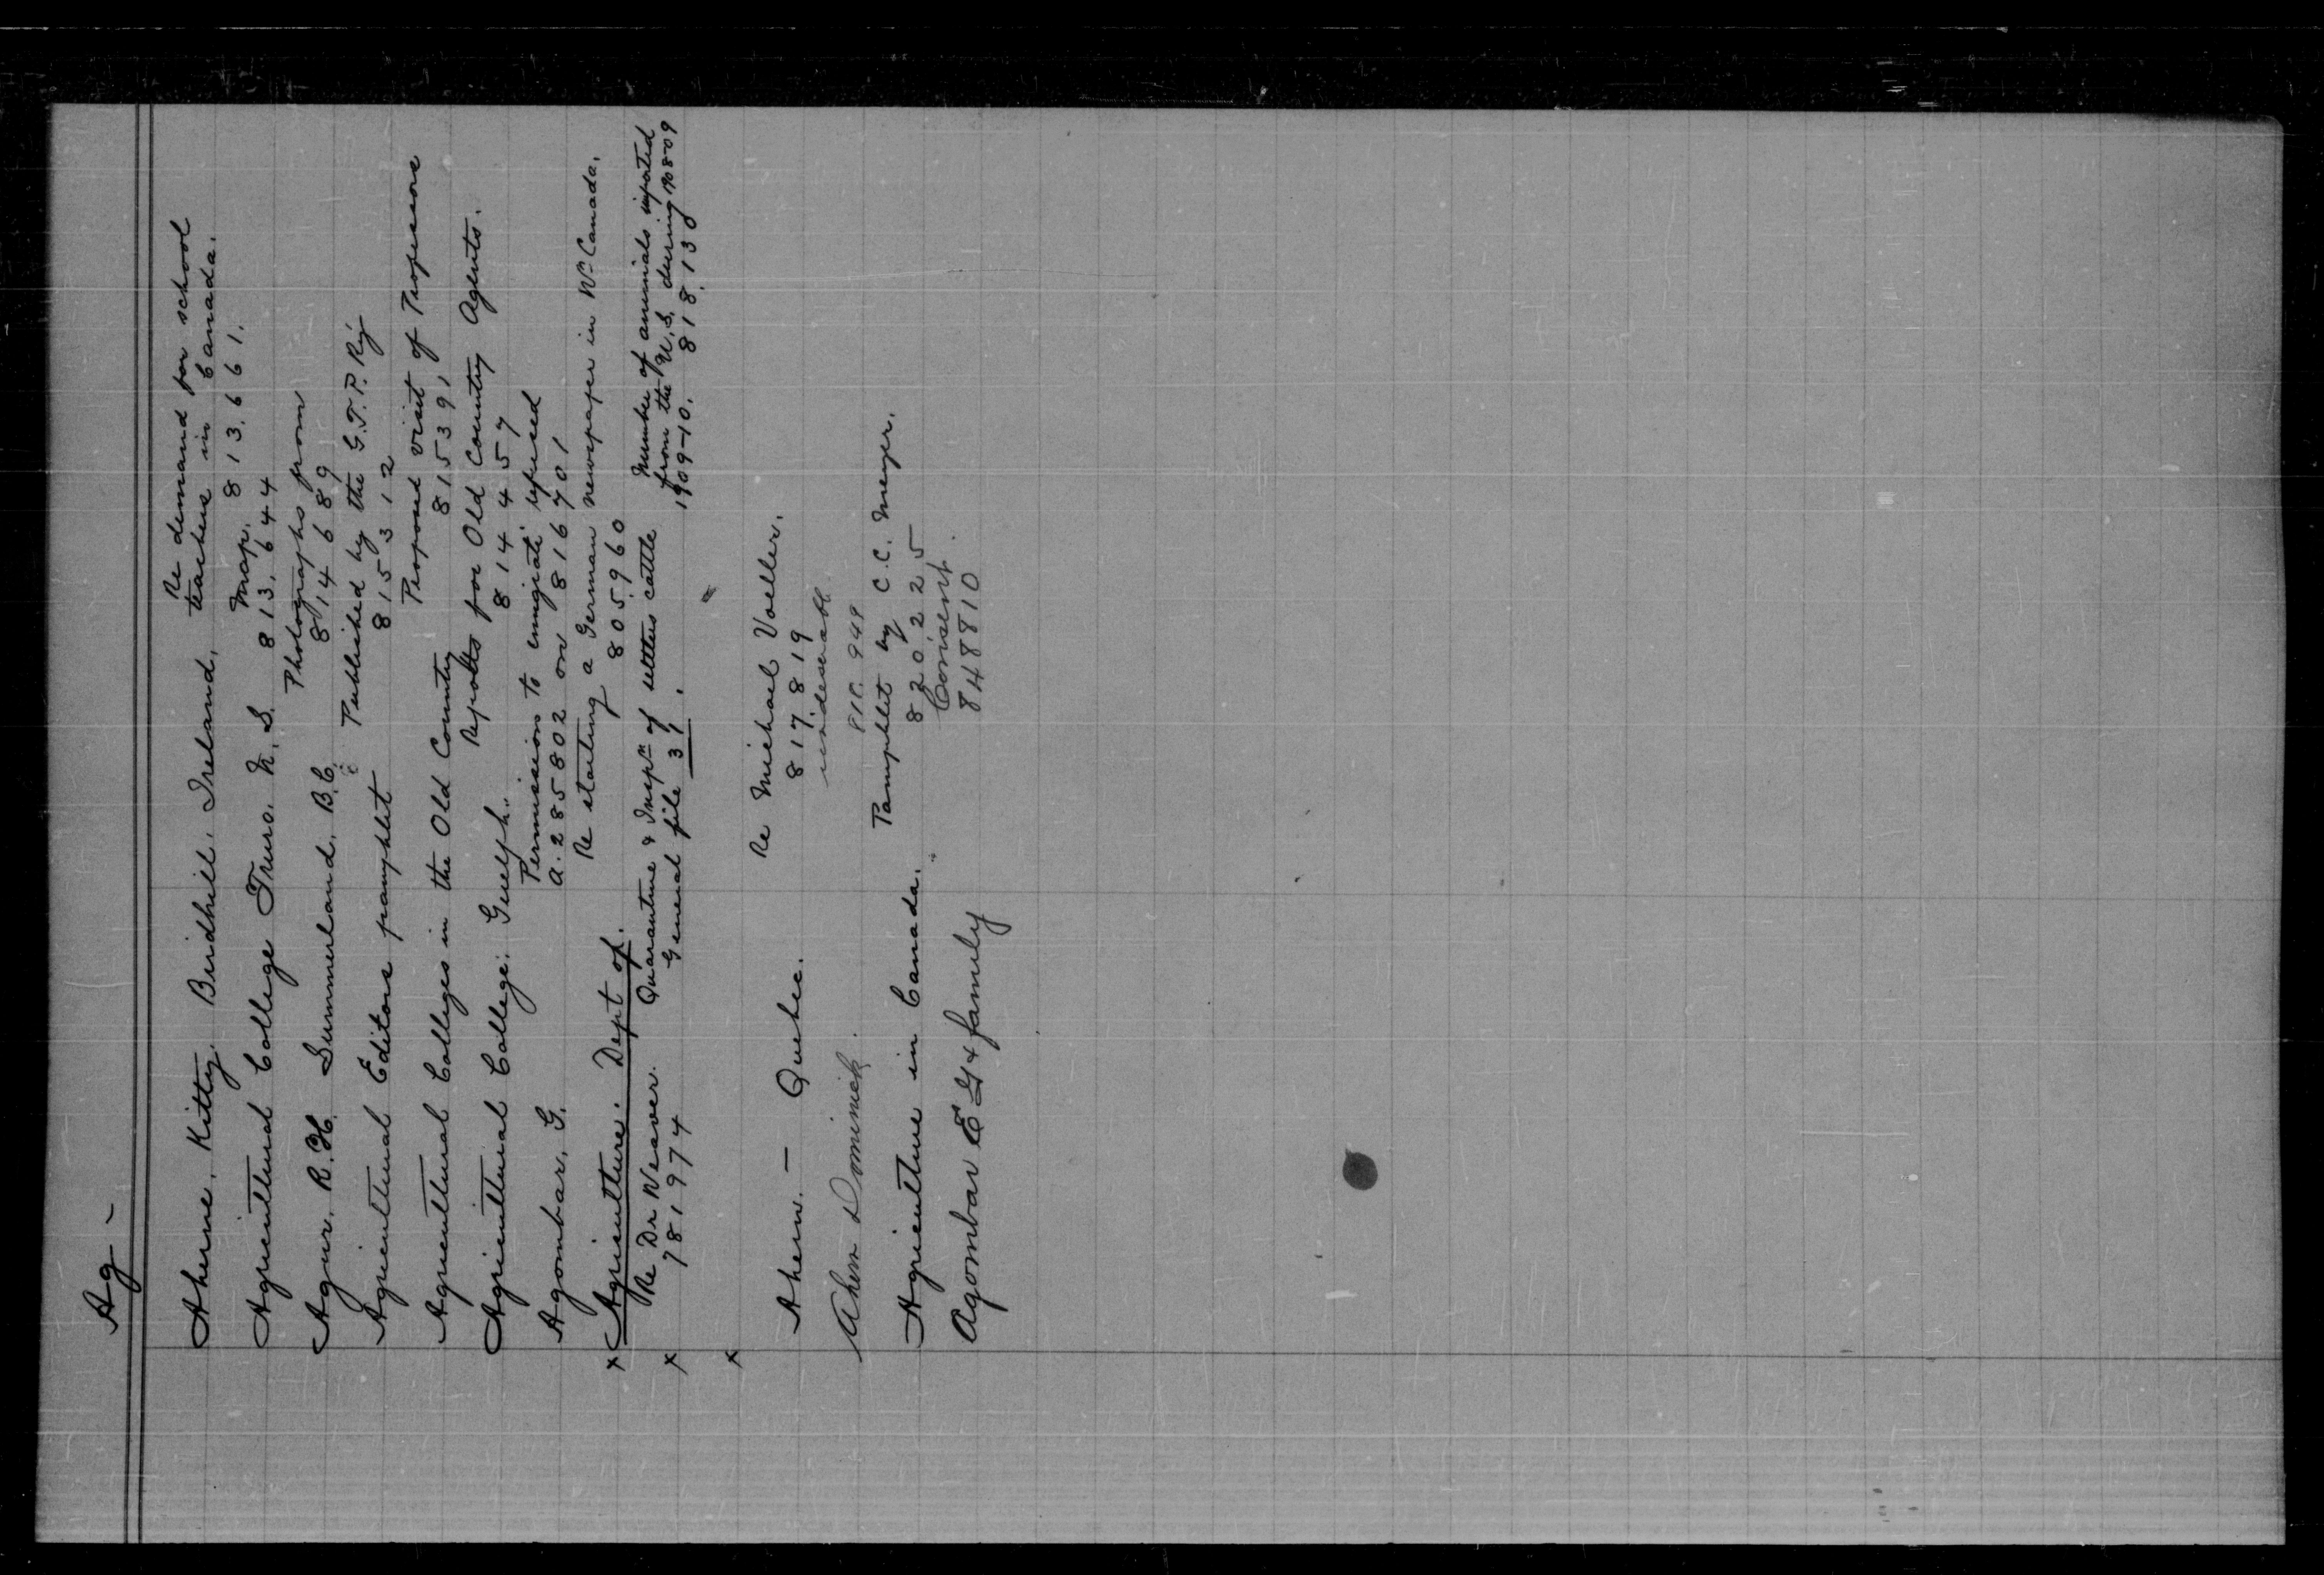 Ag -
Re demand for school
Aherne, Kitty, Birdhill, Ireland, teachers in Canada.
Map. 813,661.
Agricultural College Truro. N.S. 813,644
Photographs from
Agur, R.H. Summerland, B.C. 814689
Published by the G.T.P. Ry
Agricultural Editors pamphlet 815312
Proposed visit of Professors
Agricultural Colleges in the Old Country 815391
Reports for Old Country Agents.
Agricultural College. Guelph. 814457
Permission to emigrate refused
Agombar, G. A. 285802 on 816701
Re starting a German newspaper in Wn Canada.
x Agriculture. Dept of. 805960
Re Dr Weaver. Quarantine & Inspn of settlers cattle Number of animals imported
x 781974 General file 31. from the U.S. during 1908-09
1909-10. 818,130
x
Re Michael Voeller.
Ahern. - Quebec. 817819
undesirable
Ahern Dominick. 818.948
Pamphlet by C.C. Menger.
Agriculture in Canada. 820,225
Consent.
Agombar E G & family 848810